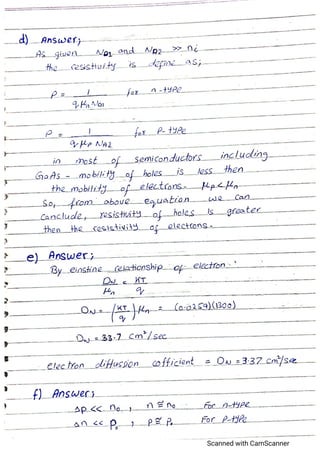 d) Answer;
As given N_D1 and N_D2 >> n_i
the resistivity is define as;
ρ = 1 / q μ_n N_D1 for n-type
ρ = 1 / q μ_p N_A2 for P-type
in most of semiconductors including
GaAs - mobility of holes is less then
the mobility of electrons. μ_p < μ_n
So, from above equation we can
Conclude, resistivity of holes is greater
then the resistivity of electrons.
e) Answer;
By einstine relationship of electron.
D_N / μ_n = KT / q
D_N = (KT / q) μ_n = (0.0259)(1300)
D_N = 33.7 cm²/sec
electron diffussion cofficient = D_N = 3.37 cm²/sec
f) Answer;
Δp << n_o, n ≅ n_o For n-type
Δn << P_o, p ≅ P_o For P-type
Scanned with CamScanner